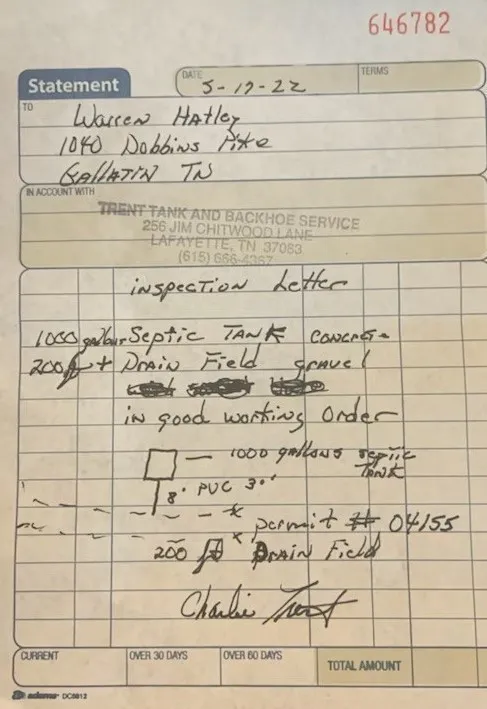 646782
Statement
DATE 5-17-22
TERMS
TO
Warren Hatley
1040 Dobbins Pike
Gallatin TN
IN ACCOUNT WITH
TRENT TANK AND BACKHOE SERVICE
256 JIM CHITWOOD LANE
LAFAYETTE, TN 37083
(615) 666-4367
inspection Letter
1000 gallons Septic TANK concrete
200 ft Drain Field gravel
in good working Order
1000 gallons septic
TANK
8' PVC 30'
permit # 04155
200 ft Drain Field
Charlie Trent
CURRENT
OVER 30 DAYS
OVER 60 DAYS
TOTAL AMOUNT
adams DC5812